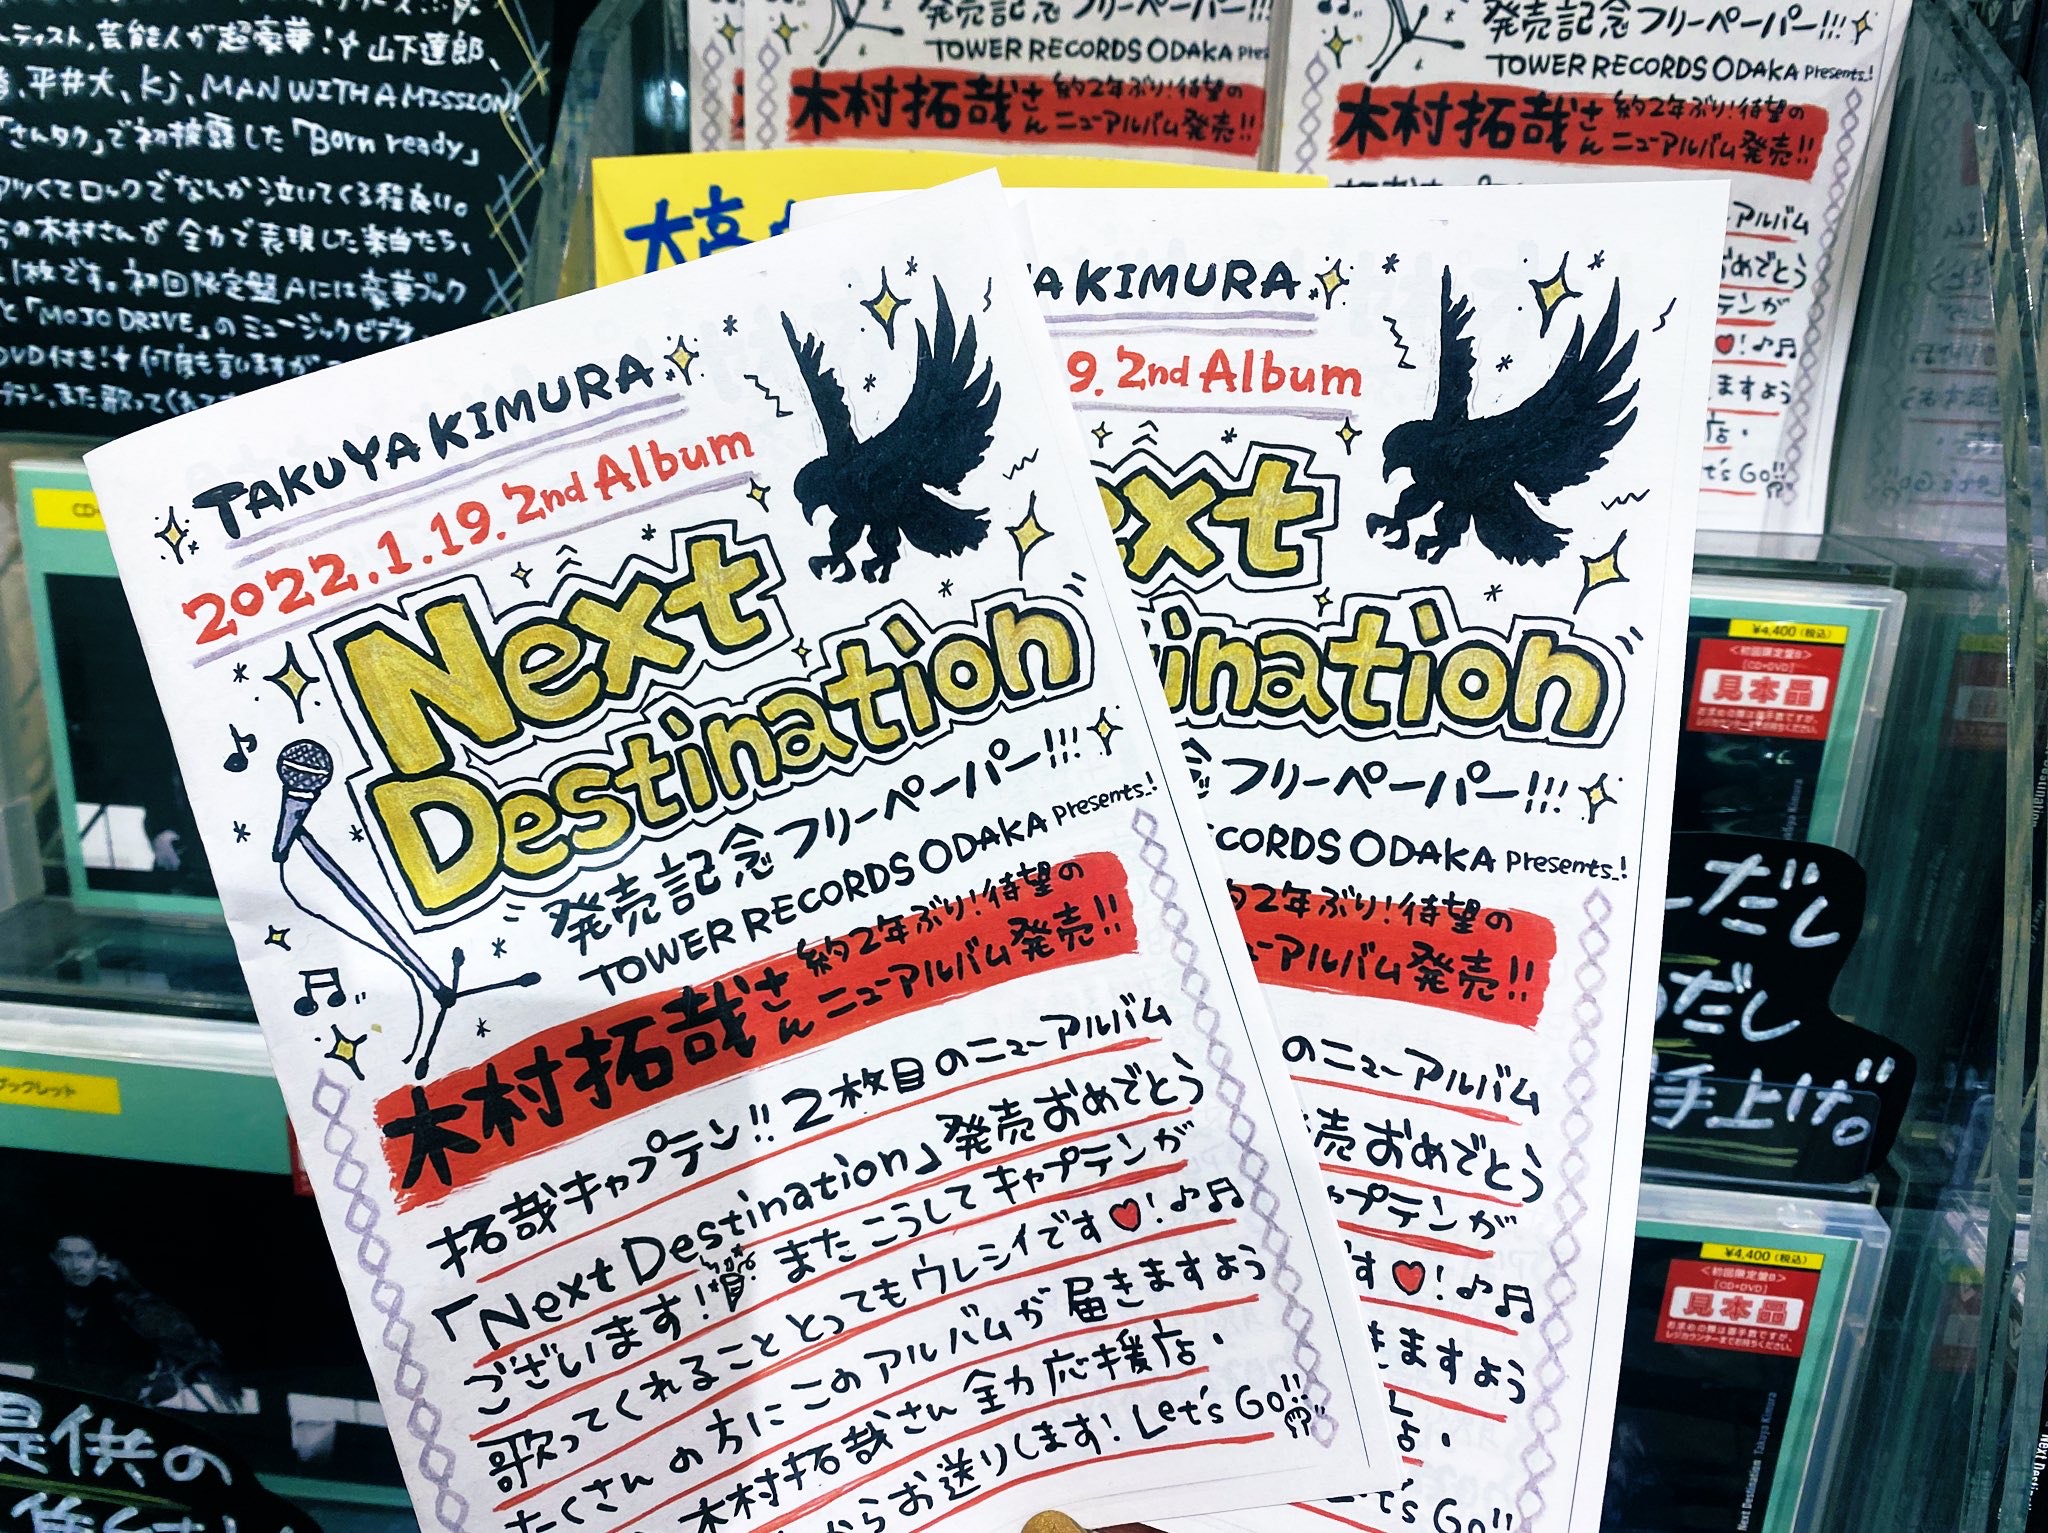 ーティスト,芸能人が超豪華!山下達郎、
、平井大、Kj、MAN WITH A MISSION!
「さんタク」で初披露した「Born ready」
アツくてロックでなんか泣いてくる程良い。
の木村さんが全力で表現した楽曲たち、
1枚です。初回限定盤Aには豪華ブック
と「MOJO DRIVE」のミュージックビデオ
DVD付き!何度も言いますが
発売記念フリーペーパー!!!
TOWER RECORDS ODAKA Pres
木村拓哉さん 約2年ぶり!待望の
ニューアルバム発売!!
発売記念フリーペーパー!!!
TOWER RECORDS ODAKA Presents..!
木村拓哉さん 約2年ぶり!待望の
ニューアルバム発売!!
アルバム
おめでとう
ンが
ますよう
店・
Let's Go!!
大高
TAKUYA KIMURA
2022.1.19. 2nd Album
Next
Destination
発売記念フリーペーパー!!!
TOWER RECORDS ODAKA Presents..!
木村拓哉さん 約2年ぶり!待望の
ニューアルバム発売!!
拓哉キャプテン!!2枚目のニューアルバム
「Next Destination」発売おめでとう
ございます! またこうしてキャプテンが
歌ってくれることとってもウレシイです♥!♪♫
たくさんの方にこのアルバムが届きますよう
木村拓哉さん全力応援店・
からお送りします! Let's Go!!
YA KIMURA
9. 2nd Album
ext
ination
念フリーペーパー!!!
CORDS ODAKA Presents..!
約2年ぶり!待望の
ューアルバム発売!!
のニューアルバム
売おめでとう
ャプテンが
す♥!♪♫
きますよう
Let's Go!!
¥4,400(税込)
<初回限定盤B>
[CD+DVD]
見本品
お求めの際は お手数ですが、
レジカウンターまでお持ちください。
だし
だし
手上げ。
¥4,400(税込)
<初回限定盤B>
[CD+DVD]
見本品
お求めの際は お手数ですが、
レジカウンターまでお持ちください。
Next Destination Takuya Kimura
ブックレット
提供の